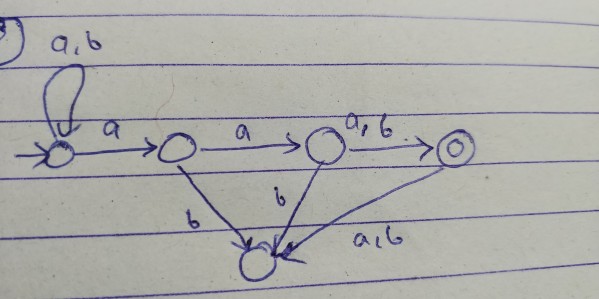 a, b
a
a
a, b
b
b
a, b